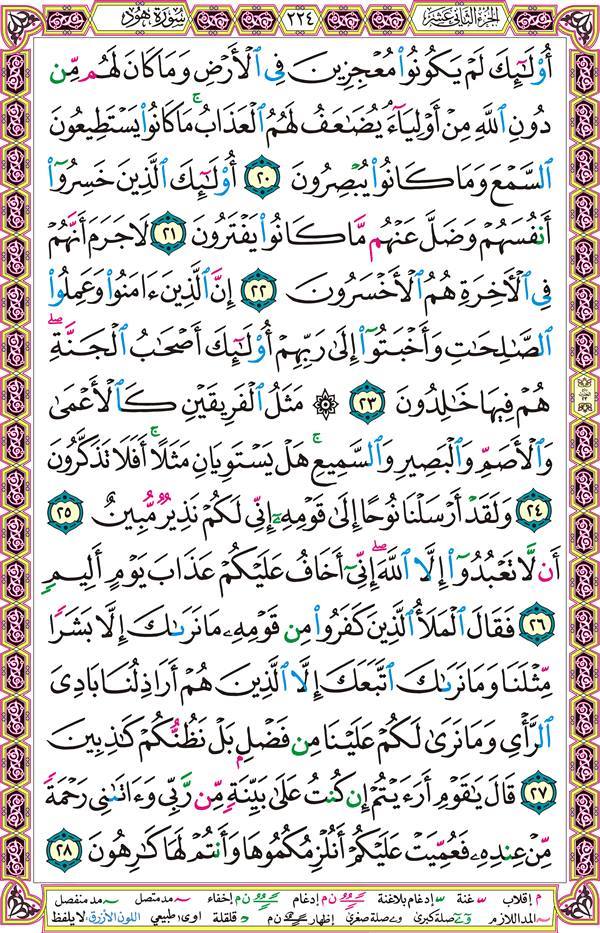 الجزء الثاني عشر ٢٢٤ سورة هود
أُوْلَٰٓئِكَ لَمْ يَكُونُوا۟ مُعْجِزِينَ فِى ٱلْأَرْضِ وَمَا كَانَ لَهُم مِّن
دُونِ ٱللَّهِ مِنْ أَوْلِيَآءَ ۘ يُضَٰعَفُ لَهُمُ ٱلْعَذَابُ ۚ مَا كَانُوا۟ يَسْتَطِيعُونَ
ٱلسَّمْعَ وَمَا كَانُوا۟ يُبْصِرُونَ ٢٠ أُوْلَٰٓئِكَ ٱلَّذِينَ خَسِرُوٓا۟
أَنفُسَهُمْ وَضَلَّ عَنْهُم مَّا كَانُوا۟ يَفْتَرُونَ ٢١ لَا جَرَمَ أَنَّهُمْ
فِى ٱلْأَخِرَةِ هُمُ ٱلْأَخْسَرُونَ ٢٢ إِنَّ ٱلَّذِينَ ءَامَنُوا۟ وَعَمِلُوا۟
ٱلصَّٰلِحَٰتِ وَأَخْبَتُوٓا۟ إِلَىٰ رَبِّهِمْ أُوْلَٰٓئِكَ أَصْحَٰبُ ٱلْجَنَّةِ ۖ
هُمْ فِيهَا خَٰلِدُونَ ٢٣ ۞ مَثَلُ ٱلْفَرِيقَيْنِ كَٱلْأَعْمَىٰ
وَٱلْأَصَمِّ وَٱلْبَصِيرِ وَٱلسَّمِيعِ ۚ هَلْ يَسْتَوِيَانِ مَثَلًا ۚ أَفَلَا تَذَكَّرُونَ
٢٤ وَلَقَدْ أَرْسَلْنَا نُوحًا إِلَىٰ قَوْمِهِۦٓ إِنِّى لَكُمْ نَذِيرٌ مُّبِينٌ ٢٥
أَن لَّا تَعْبُدُوٓا۟ إِلَّا ٱللَّهَ ۖ إِنِّىٓ أَخَافُ عَلَيْكُمْ عَذَابَ يَوْمٍ أَلِيمٍ
٢٦ فَقَالَ ٱلْمَلَأُ ٱلَّذِينَ كَفَرُوا۟ مِن قَوْمِهِۦ مَا نَرَىٰكَ إِلَّا بَشَرًا
مِّثْلَنَا وَمَا نَرَىٰكَ ٱتَّبَعَكَ إِلَّا ٱلَّذِينَ هُمْ أَرَاذِلُنَا بَادِىَ
ٱلرَّأْىِ وَمَا نَرَىٰ لَكُمْ عَلَيْنَا مِن فَضْلٍۭ بَلْ نَظُنُّكُمْ كَٰذِبِينَ
٢٧ قَالَ يَٰقَوْمِ أَرَءَيْتُمْ إِن كُنتُ عَلَىٰ بَيِّنَةٍ مِّن رَّبِّى وَءَاتَىٰنِى رَحْمَةً
مِّنْ عِندِهِۦ فَعُمِّيَتْ عَلَيْكُمْ أَنُلْزِمُكُمُوهَا وَأَنتُمْ لَهَا كَٰرِهُونَ ٢٨
م إقلاب غنة إدغام بلاغنة ن م إدغام ن م إخفاء مد متصل مد منفصل
المد اللازم صلة كبرى صلة صغرى إظهار ن م قلقلة اوى طبيعي اللون الأزرق لا يلفظ